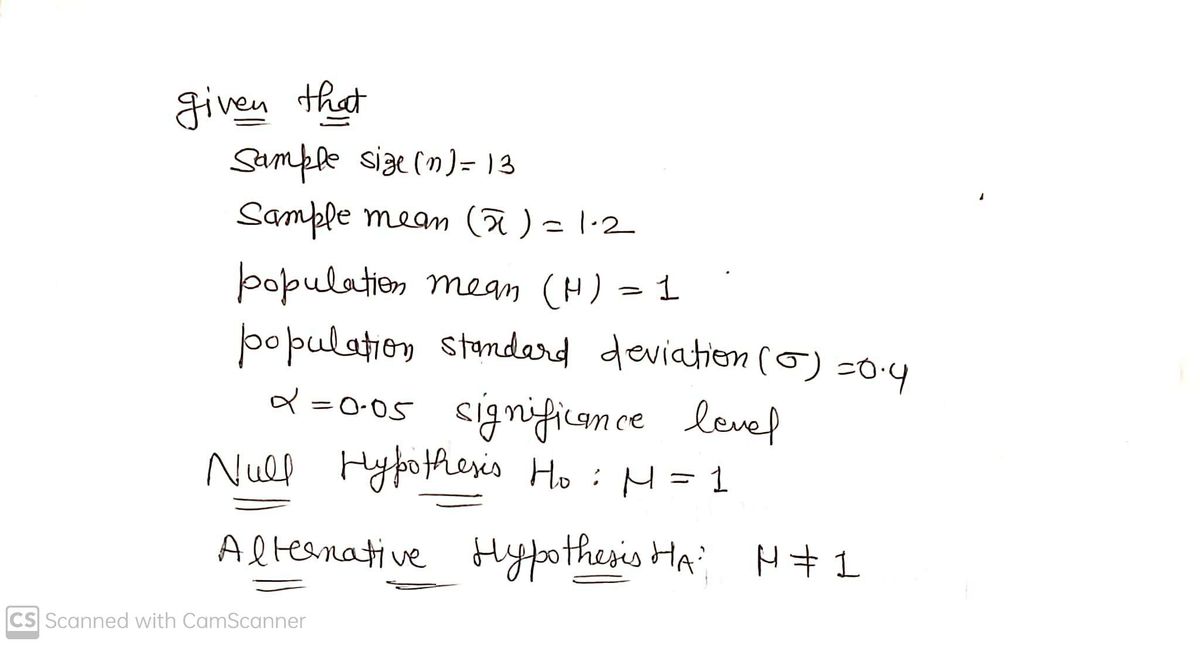 given that
Sample size (n) = 13
Sample mean (x̄) = 1.2
population mean (μ) = 1
population standard deviation (σ) = 0.4
α = 0.05 significance level
Null Hypothesis H₀ : μ = 1
Alternative Hypothesis Hᴀ: μ ≠ 1
CS Scanned with CamScanner